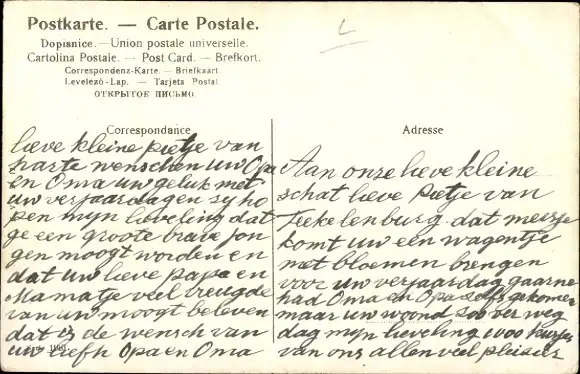 Postkarte. — Carte Postale.
Dopisnice. — Union postale universelle.
Cartolina Postale. — Post Card. — Brefkort.
Correspondenz-Karte. — Briefkaart.
Levelező-Lap. — Tarjeta Postal
ОТКРЫТОЕ ПИСЬМО.
Correspondance
lieve kleine pietje van
harte wenschen uw Opa
en Oma uw geluk met
uw verjaardagen zy ho
pen myn lieveling dat
ge een groote brave jon
gen moogt worden en
dat uw lieve papa en
Mamatje veel vreugde
van uw moogt beleven
dat is de wensch van
uw liefh Opa en Oma
Adresse
Aan onze lieve kleine
schat lieve Pietje van
Leekelenburg dat meisje
komt uw een wagentje
met bloemen brengen
voor uw verjaardag gaarne
had Oma en Opa zelfs gekomen
maar uw woond zoo ver weg
dag myn lieveling 1000 kusjes
van ons allen veel pleisier